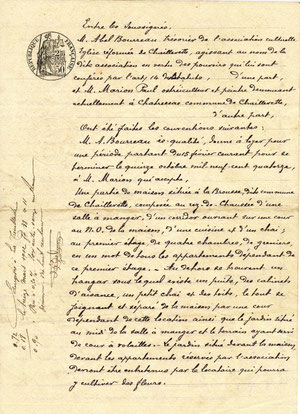 Entre les Soussignés
M. Abel Bourreau trésorier de l'association cultuelle
Eglise réformée de Chaillevette, agissant au nom de la
dite association en vertu des pouvoirs qui lui sont
conférés par l'arty 14 des Statuts. D'une part,
et M. Marion Paul ostréiculteur et peintre demeurant
actuellement à Chatressac commune de Chaillevette,
d'autre part,
Ont été faites les conventions suivantes:
M. A. Bourreau ès-qualité, donne à loyer pour
une période partant du 1er février courant pour se
terminer le quinze octobre mil neuf cent quatorze,
à M. Marion qui accepte,
Une partie de maison située à la Brousse, dite commune
de Chaillevette, composée au rez-de-Chaussée d'une
salle à manger, d'un corridor ouvrant sur une cour
au N.O. de la maison, d'une cuisine et d'un chai;
au premier étage de quatre chambres, de greniers,
en un mot de tous les appartements dépendant de ce
premier étage. Au dehors se trouvent un
hangar sous lequel existe un puits, des cabinets
d'aisance, un petit chai et des toits, le tout se
joignant et séparé de la maison par une cour
dépendant de cette location ainsi que le jardin situé
au midi de la salle à manger et le terrain ayant servi
de cour à volailles. Le jardin situé devant la maison,
devant les appartements réservés par l'association
devront être entretenus par le locataire qui pourra
y cultiver des fleurs.